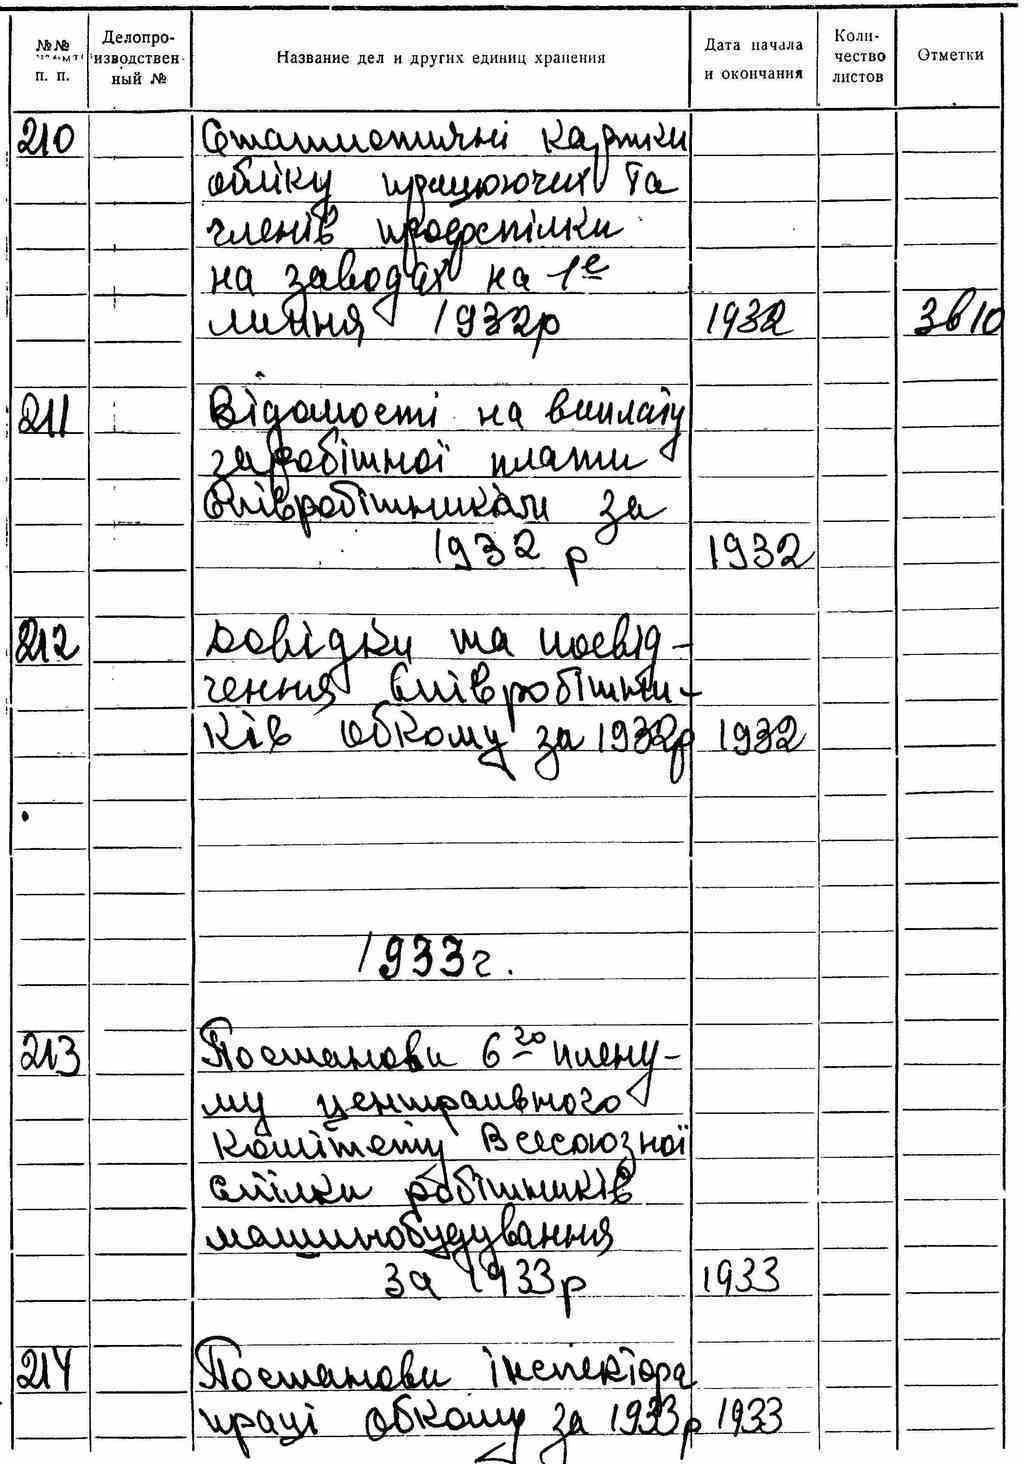 №№ п. п.
Делопро-
изводствен-
ный №
Название дел и других единиц хранения
Дата начала
и окончания
Коли-
чество
листов
Отметки
210
Статистичні картки
обліку працюючих та
членів профспілки
на заводах на 1е
липня 1932р 1932 Зв10
211 Відомості на виплату
заробітної плати
співробітникам за
1932 р 1932
212 Довідки та посвід-
чення співробітни-
ків обкому за 1932р 1932
1933г.
213 Постанови 6го плену-
му центрального
комітету Всесоюзної
спілки робітників
машинобудування
за 1933р 1933
214 Постанови інспектора
праці обкому за 1933р 1933